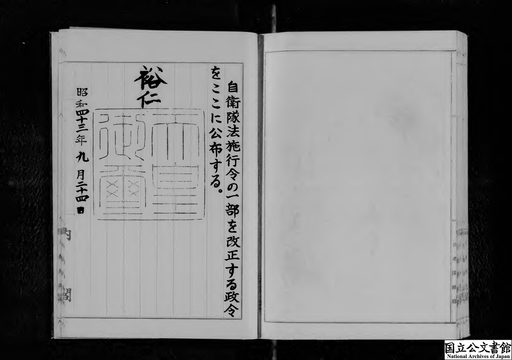 自衛隊法施行令の一部を改正する政令
をここに公布する。
裕仁
天皇
御璽
昭和四十三年九月二十四日
内閣
国立公文書館
National Archives of Japan